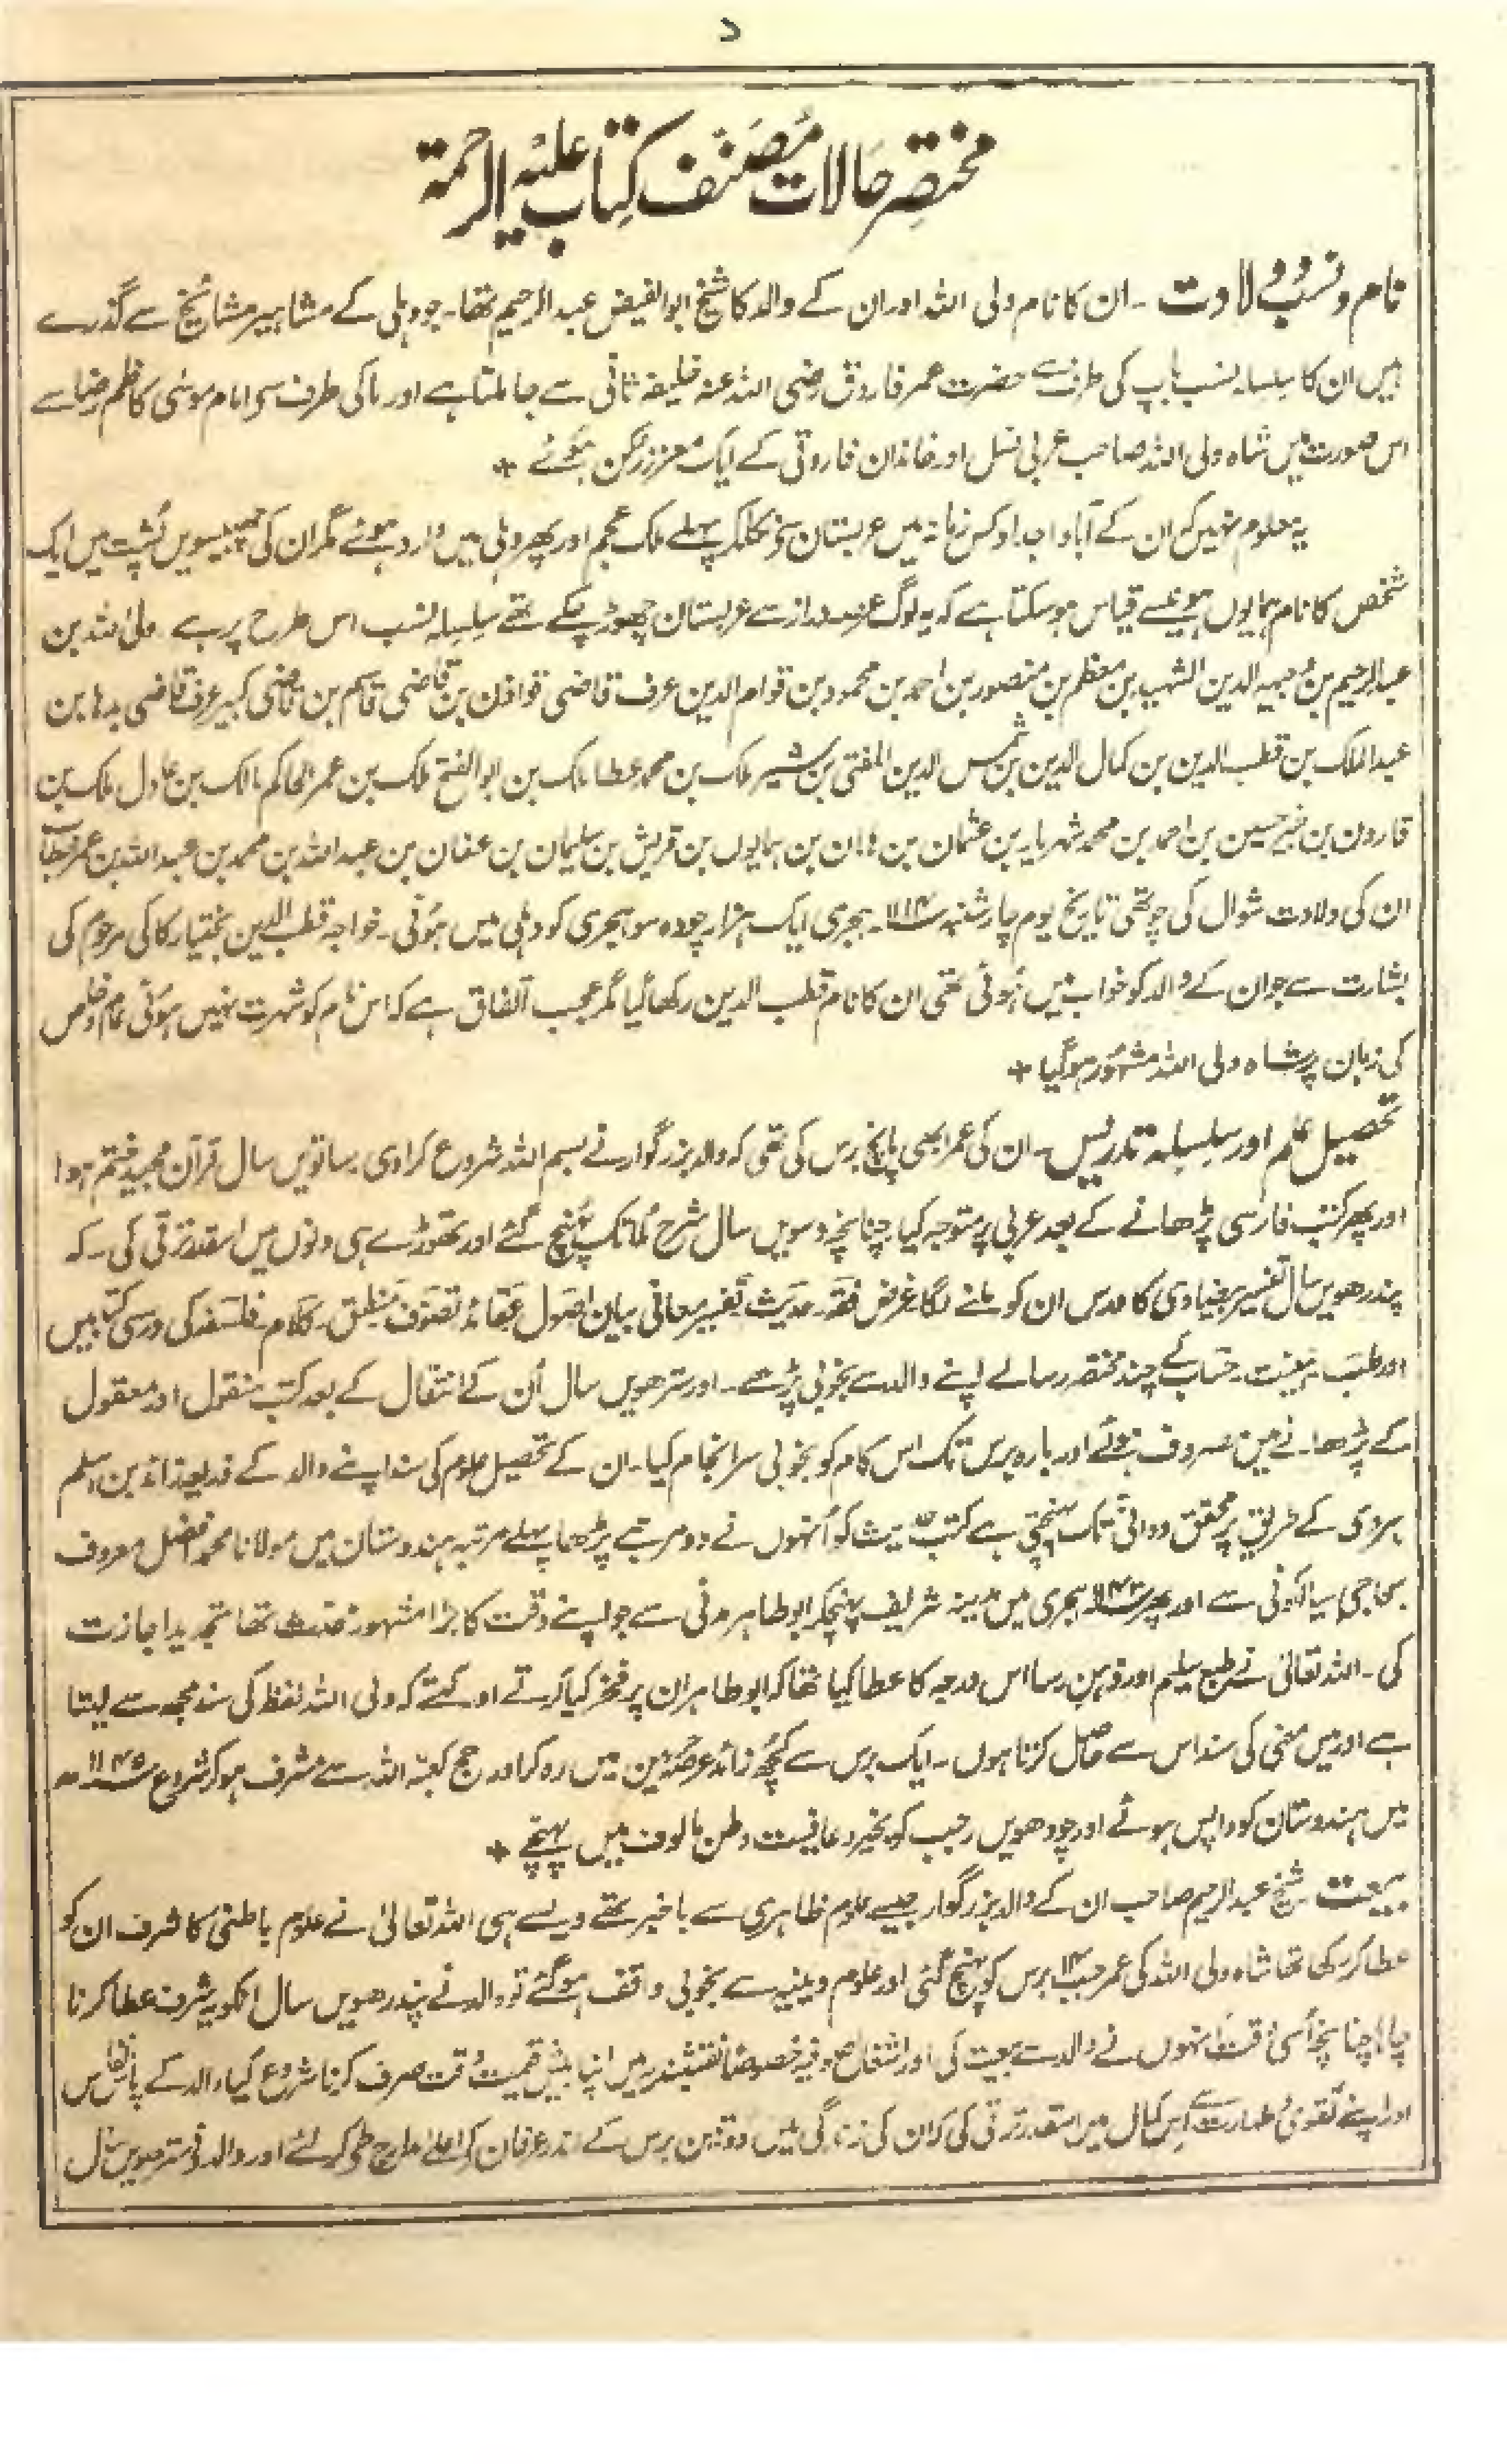 د
مختصر حالات مصنف کتاب علیہ الرحمۃ
نام و نسب و ولادت ۔ ان کا نام ولی اللہ اور ان کے والد کا شیخ ابوالفیض عبدالرحیم تھا۔ جو دہلی کے مشاہیر مشائخ سے گذرے
ہیں ان کا سلسلہ نسب باپ کی طرف سے حضرت عمر فاروق رضی اللہ عنہ خلیفہ ثانی سے جا ملتا ہے اور ماکی طرف سے امام موسٰی کاظم رضا سے
اس صورت میں شاہ ولی اللہ صاحب عربی نسل اور خاندان فاروقی کے ایک معزز رکن ہوئے +
یہ معلوم نہیں کہ ان کے آباو اجداد کس زمانہ میں عربستان سے نکلکر پہلے ملک عجم اور پھر دہلی میں وارد ہوئے مگر ان کی پشت میں ایک
شخص کا نام ہمایوں ہے قیاس ہو سکتا ہے کہ یہ لوگ عرصہ دراز سے عربستان چھوڑ چکے تھے سلسلہ نسب اس طرح پر ہے ولی اللہ بن
عبدالرحیم بن وجیہ الدین الشہید بن معظم بن منصور بن احمد بن محمود بن قوام الدین عرف قاضی قوافن بن قاضی قاسم بن قاضی کبیر عرف قاضی بدہا بن
عبدالملک بن قطب الدین بن کمال الدین بن شمس الدین المفتی بن شیر ملک بن محمد عطا ملک بن ابوالفتح ملک بن عمر الحاکم مالک بن عادل ملک بن
قارون بن جرجیس بن احمد بن محمد شہریار بن عثمان بن ہامان بن ہمایوں بن قریش بن سلیمان بن عفان بن عبداللہ بن محمد بن عبداللہ بن عمر خطاب
ان کی ولادت شوال کی چوتھی تاریخ یوم چارشنبہ ۱۱۱۴ ۔ ہجری ایک ہزار چودہ سو ہجری کو دہلی میں ہوئی۔ خواجہ قطب الدین بختیار کاکی مرحوم کی
بشارت سے جو ان کے والد کو خواب میں ہوئی تھی ان کا نام قطب الدین رکھا گیا مگر عجب اتفاق ہے کہ اس نام کو شہرت نہیں ہوئی عام و خاص
کی زبان پر شاہ ولی اللہ مشہور ہو گیا +
تحصیل علم اور سلسلہ تدریس۔ ان کی عمر ابھی پانچ برس کی تھی کہ والد بزرگوار نے بسم اللہ شروع کرا دی۔ ساتویں سال قرآن مجید ختم ہوا
اور پھر کتب فارسی پڑھانے کے بعد عربی پر متوجہ کیا چنانچہ دسویں سال شرح ملا تک پہنچ گئے اور تھوڑے ہی دنوں میں اسقدر ترقی کی۔ کہ
پندرھویں سال تفسیر بیضاوی کا درس ان کو ملنے لگا غرض فقہ۔ حدیث تفسیر معانی بیان اصول عقائد تصوف منطق۔ کلام فلسفہ کی درسی کتابیں
اور طب۔ ہیئت۔ حساب کے چند مختصر رسالے اپنے والد سے بخوبی پڑھے۔ اور سترھویں سال اُن کے انتقال کے بعد کتب منقول اور معقول
کے پڑھانے میں مصروف ہوئے اور بارہ برس تک اس کام کو بخوبی سرانجام کیا۔ ان کے تحصیل علوم کی سند اپنے والد کے ذریعہ زاہد بن اسلم
ہروی کے طریق پر محقق دوانی تک پہنچتی ہے کتب حدیث کو انہوں نے دو مرتبے پڑھا پہلے مرتبہ ہندوستان میں مولانا محمد افضل معروف
بحاجی سیالکوٹی سے اور پھر ۱۱۴۳ ہجری میں مدینہ شریف پہنچکر ابوطاہر مدنی سے جو اپنے وقت کا بڑا مشہور محدث تھا تجدید اجازت
کی۔ اللہ تعالیٰ نے طبع سلیم اور ذہن رسا اس درجہ کا عطا کیا تھا کہ ابوطاہر ان پر فخر کیا کرتے اور کہتے کہ ولی اللہ لفظ کی سند مجھ سے لیتا
ہے اور میں معنی کی سند اس سے حاصل کرتا ہوں۔ ایک برس سے کچھ زائد عرصہ حرمین میں رہ کر اور حج کعبۃ اللہ سے مشرف ہو کر شروع ۱۱۴۵ھ
میں ہندوستان کو واپس ہوئے اور چودھویں رجب کو بخیر و عافیت وطن مالوف میں پہنچے +
بیعت شیخ عبدالرحیم صاحب ان کے والد بزرگوار جیسے علوم ظاہری سے باخبر تھے ویسے ہی اللہ تعالیٰ نے علوم باطنی کا شرف ان کو
عطا کر رکھا تھا شاہ ولی اللہ کی عمر جب ۱۴ برس کو پہنچ گئی اور علوم دینیہ سے بخوبی واقف ہو گئے تو والد نے پندرھویں سال انکو یہ شرف عطا کرنا
چاہا چنانچہ اُسی وقت انہوں نے والد سے بیعت کی اور اشغال صوفیہ خصوصاً نقشبندیہ میں اپنا بیش قیمت وقت صرف کرنا شروع کیا، والد کے پاس انفاس
اور اپنے تقویٰ طہارت سے اس کمال میں اسقدر ترقی کی کہ ان کی زندگی میں دو تین برس کے اندر عرفان کے اعلےٰ مدارج طی کر لئے اور والد نے سترھویں سال